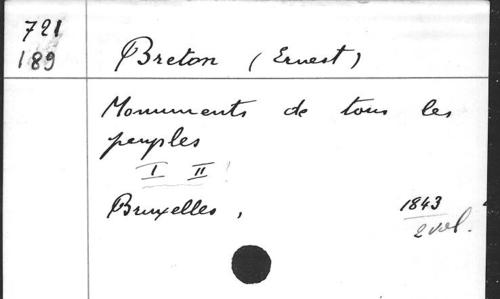 721
189
Breton (Ernest)
Monuments de tous les
peuples
I II
Bruxelles, 1843
2 vol.